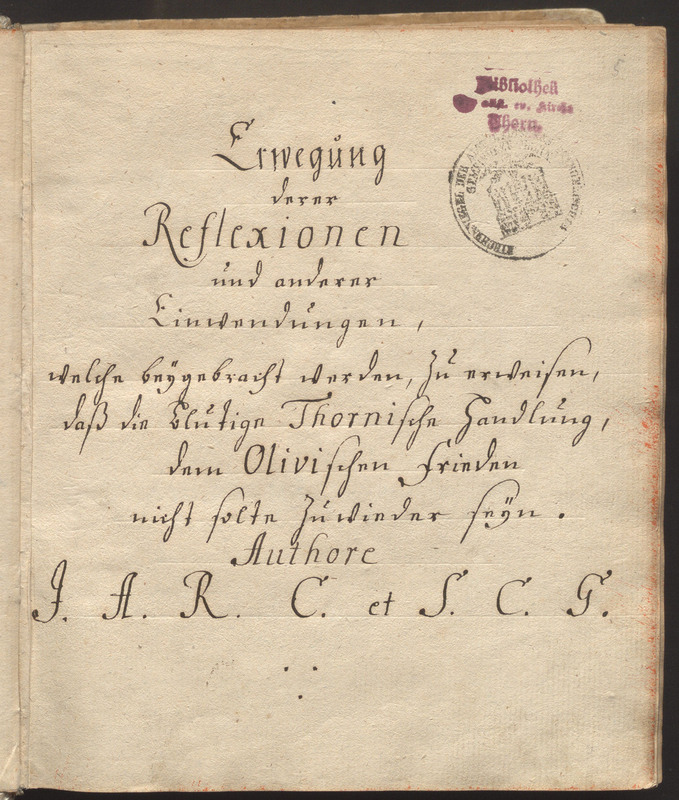 5
Bibliothek
altst. ev. Kirche
Thorn.
Erwegung
derer
Reflexionen
und anderer
Einwendungen,
welche beÿgebracht werden, Zu erweisen,
daß die blutige Thornische Handlung,
dem Olivischen Frieden
nicht solte Zuwieder seÿn.
Authore
J. A. R. C. et S. C. G.